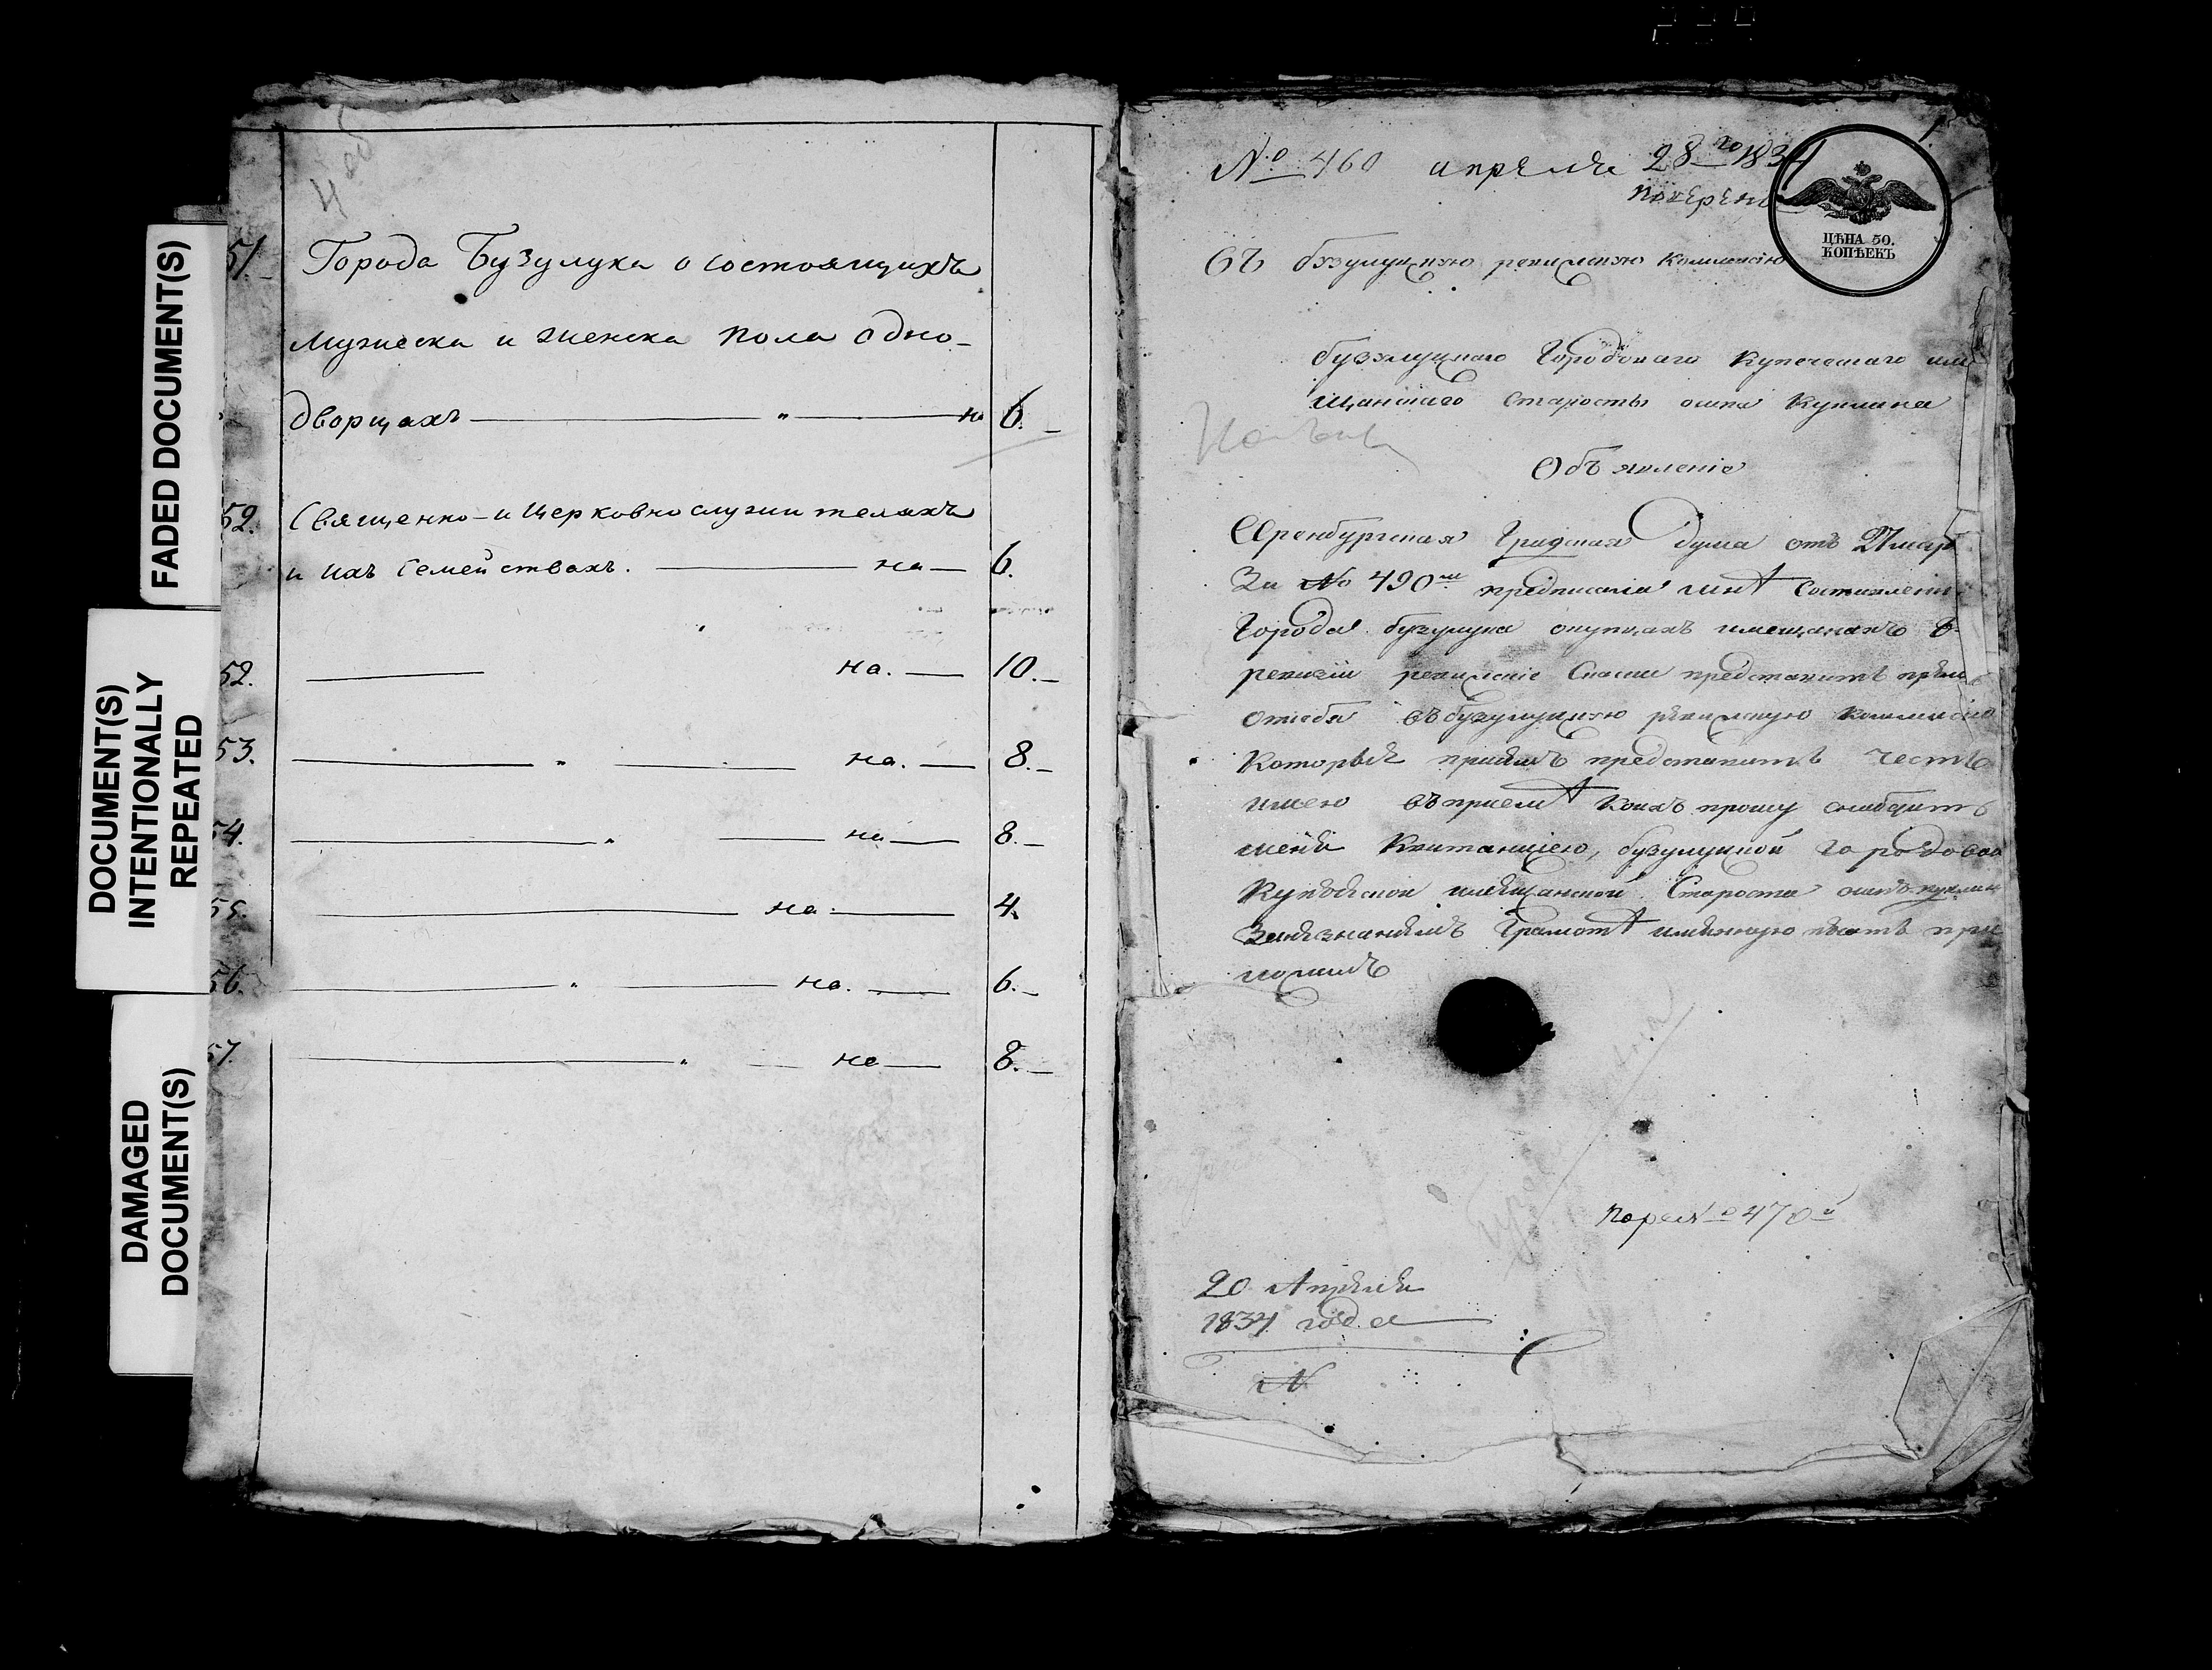 FADED DOCUMENT(S)
DOCUMENT(S)
INTENTIONALLY
REPEATED
DAMAGED
DOCUMENT(S)
51. Города Бузулука о состоящихъ
мужеска и женска пола одно-
дворцахъ — " — на 6. —
52. Священно- и церковнослужителяхъ
и ихъ семействахъ. — на — 6.
52. — на. — 10. —
53. — " — на. — 8. —
54. — " — на — 8. —
55. — на — 4.
56. — " — на. — 6. —
57. — " — на — 8. —
№ 460 апреля 28го 1834
ЦѢНА 50.
КОПѢЕКЪ
Въ бузулуцкую ревизскую коммисію
бузулуцкаго Городоваго Купеческаго и мѣ
щанскаго Старосты Куклина
Объявленіе
Оренбургская Градская дума отъ 27 мар
За № 490м предписала мнѣ Составлен
Города бузулука окупцахъ имещанахъ
ревизіи ревизскіе Скаски представить
отсебя въбузулуцкую ревизскую коммисію
Которые представить честь
имею въприемѣ коихъ прошу снабдить
меня Квитанціею, бузулуцкой Городовой
Купеческой имещанской Староста
Занезнаніемъ Грамотѣ имянную печать при
ложилъ
№ 470й
20 Апреля
1834 года
№